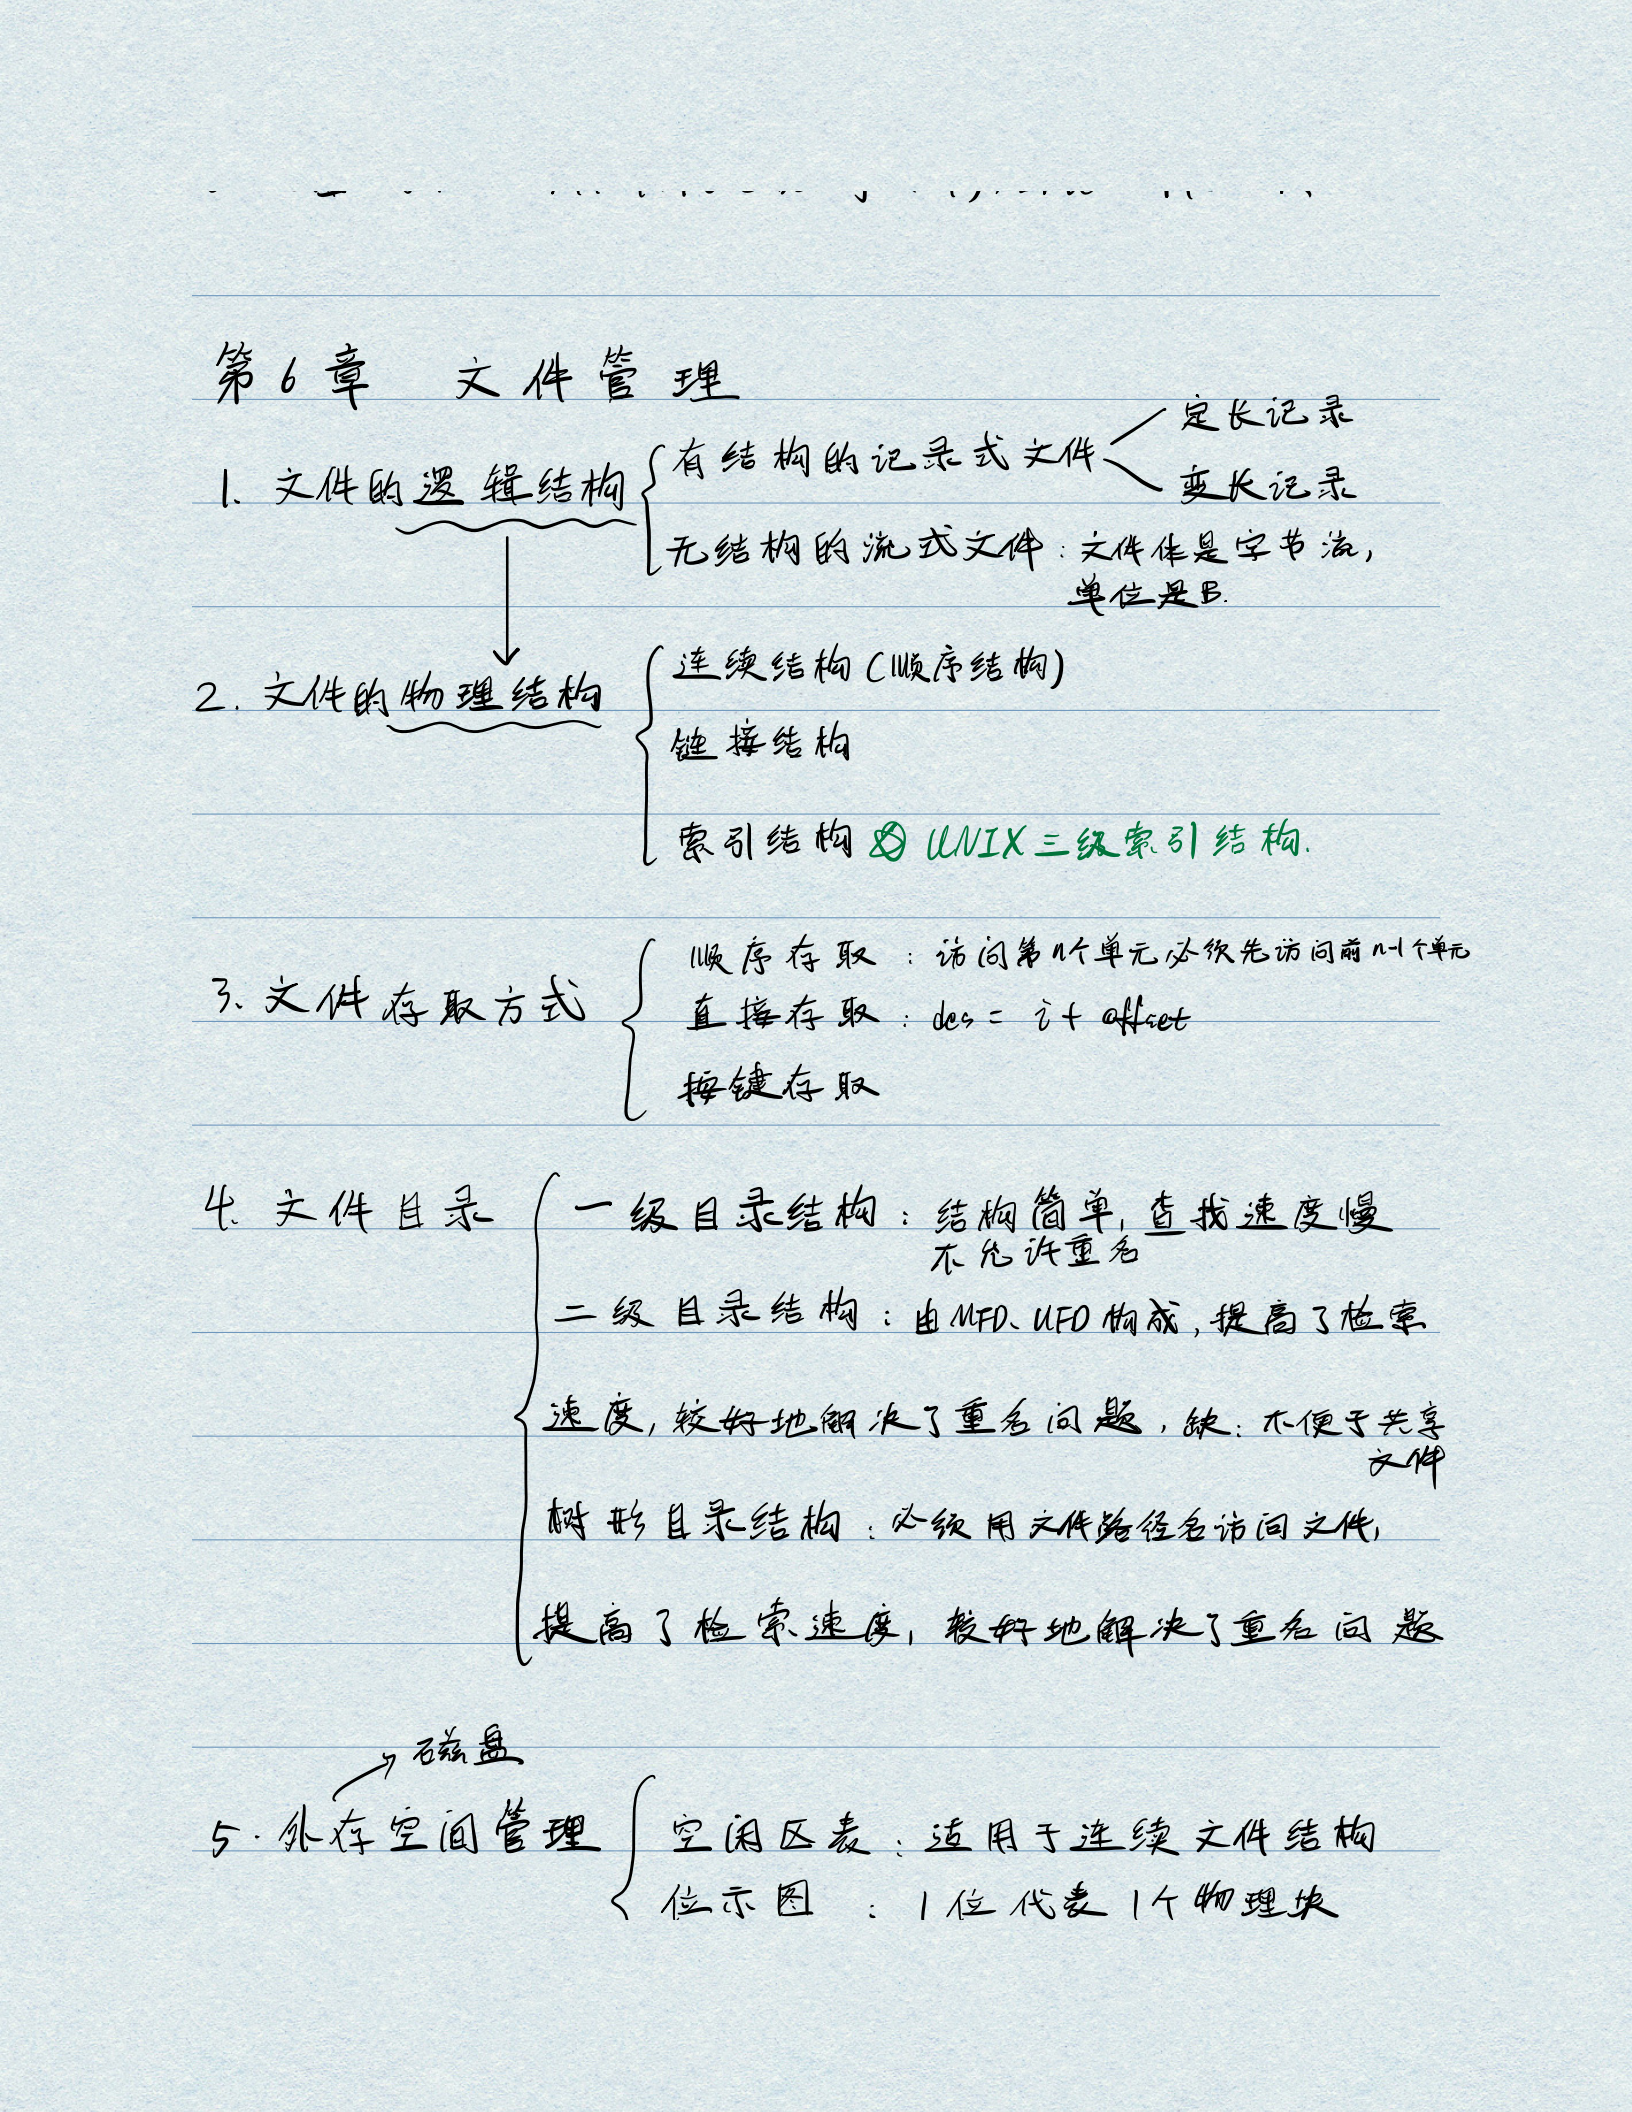 第6章 文件管理
定长记录
1. 文件的逻辑结构 有结构的记录式文件
变长记录
无结构的流式文件：文件体是字节流，
单位是B.
2. 文件的物理结构 连续结构(顺序结构)
链接结构
索引结构 UNIX三级索引结构.
顺序存取：访问第n个单元必须先访问前n-1个单元
3. 文件存取方式 直接存取：des = i + offset
按键存取
4. 文件目录 一级目录结构：结构简单，查找速度慢
不允许重名
二级目录结构：由MFD、UFD构成，提高了检索
速度，较好地解决了重名问题，缺：不便于共享
文件
树形目录结构：必须用文件路径名访问文件，
提高了检索速度，较好地解决了重名问题
磁盘
5. 外存空间管理 空闲区表：适用于连续文件结构
位示图：1位代表1个物理块